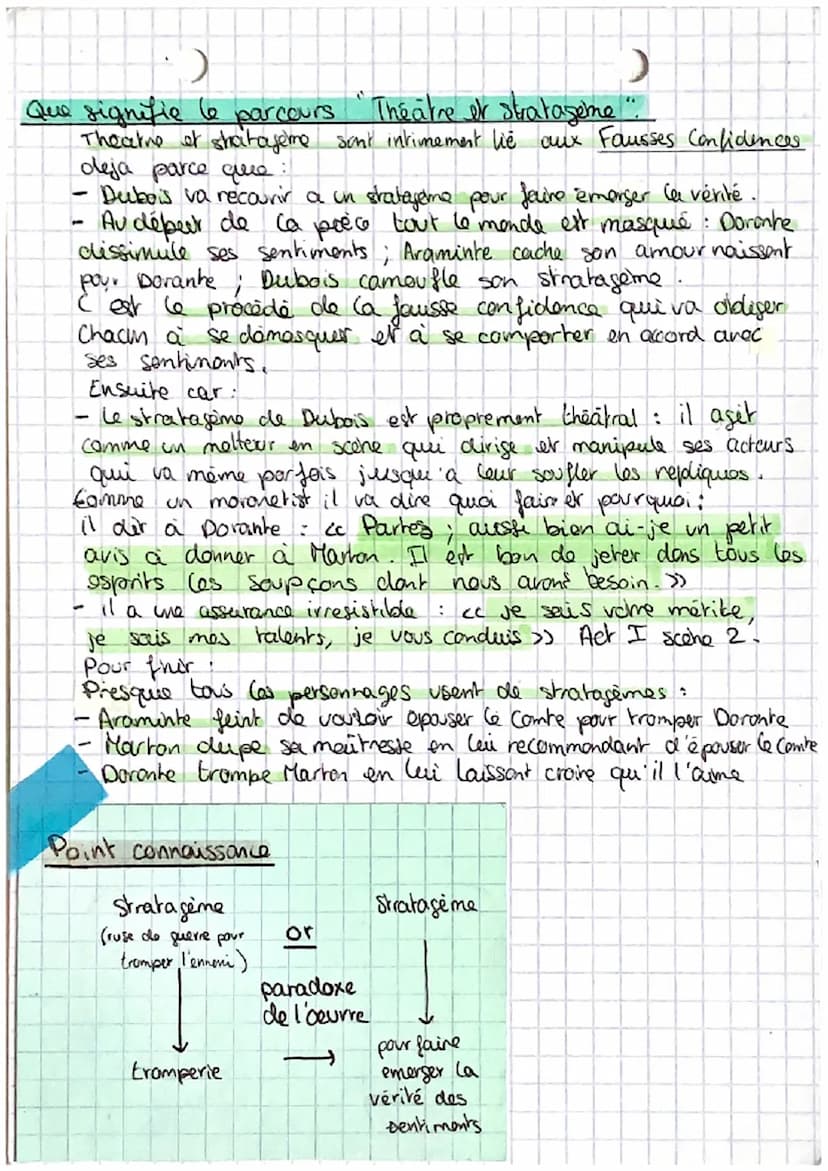 Que signifie le parcours "Théâtre et stratagème".
Théatre et stratageme sont intimement lié aux Fausses Confidences
deja parce que :
- Dubois va recourir a un stratagème pour faire émerger la vérité.
- Au départ de la pièce tout le monde est masqué : Dorante
dissimule ses sentiments ; Araminte cache son amour naissant
pour Dorante ; Dubois camoufle son stratagème.
C'est le procédé de la fausse confidence qui va obliger
chacun à se démasquer et à se comporter en accord avec
ses sentiments.
Ensuite car :
- Le stratagème de Dubois est proprement théâtral : il agit
comme un metteur en scène qui dirige et manipule ses acteurs
qui va même parfois jusqu'a leur souffler les repliques.
Comme un maronetist il va dire quoi faire et pourquoi :
il dit à Dorante : << Partez ; aussi bien ai-je un petit
avis à donner à Marton. Il est bon de jeter dans tous les
esprits les soupçons dont nous avons besoin. >>
- il a une assurance irresistible : << je sais votre mérite,
je sais mes talents, je vous conduis >> Act I scène 2.
Pour finir :
Presque tous les personnages usent de stratagèmes :
- Araminte feint de vouloir epouser le Comte pour tromper Dorante
- Marton dupe sa maîtresse en lui recommandant d'épouser le Comte
- Dorante trompe Marton en lui laissant croire qu'il l'aime
Point connaissance
Stratagème
(ruse de guerre pour
tromper l'ennemi)
tromperie
or
paradoxe
de l'œuvre
Stratagème
pour faire
emerger la
vérité des
sentiments